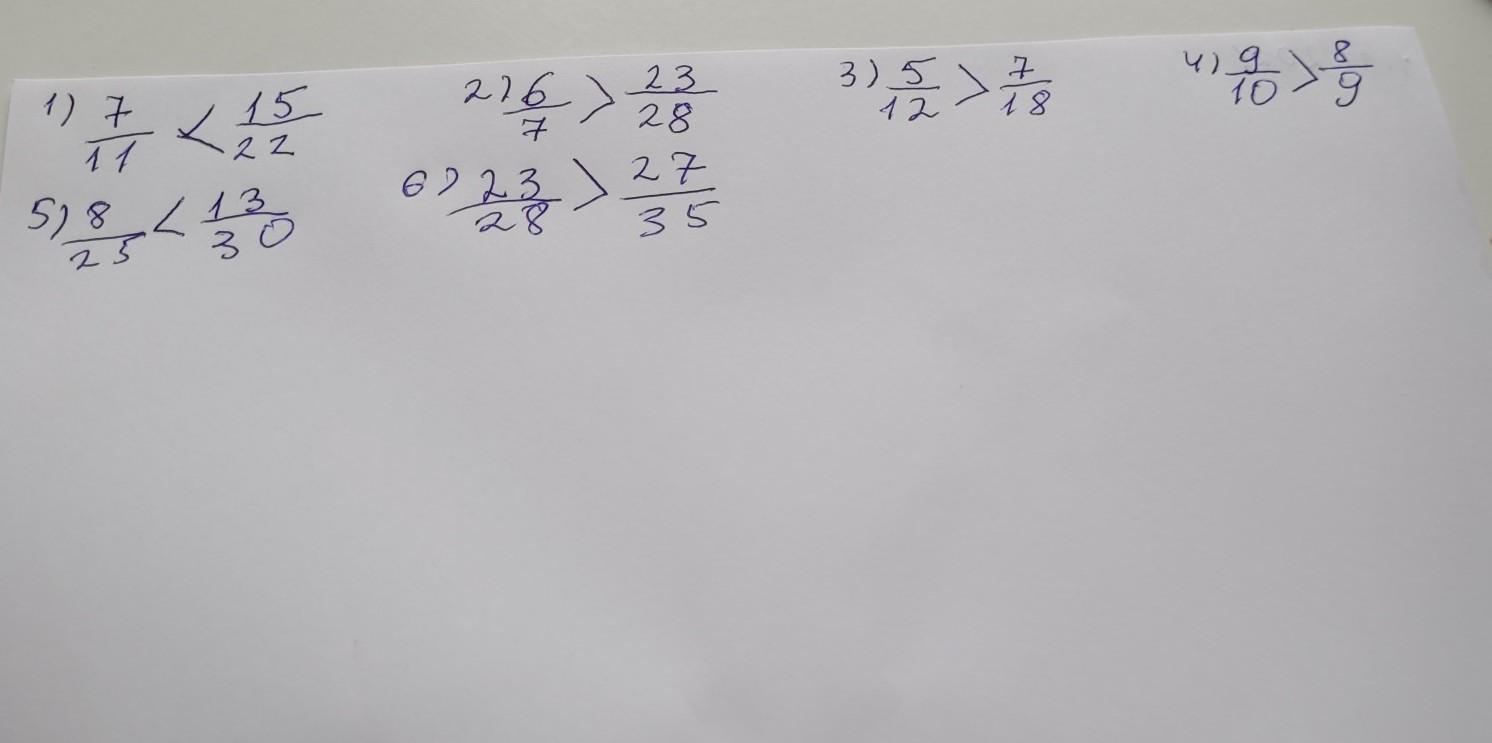 1) 7/11 < 15/22 2) 6/7 > 23/28 3) 5/12 > 7/18 4) 9/10 > 8/9
5) 8/25 < 13/30 6) 23/28 > 27/35